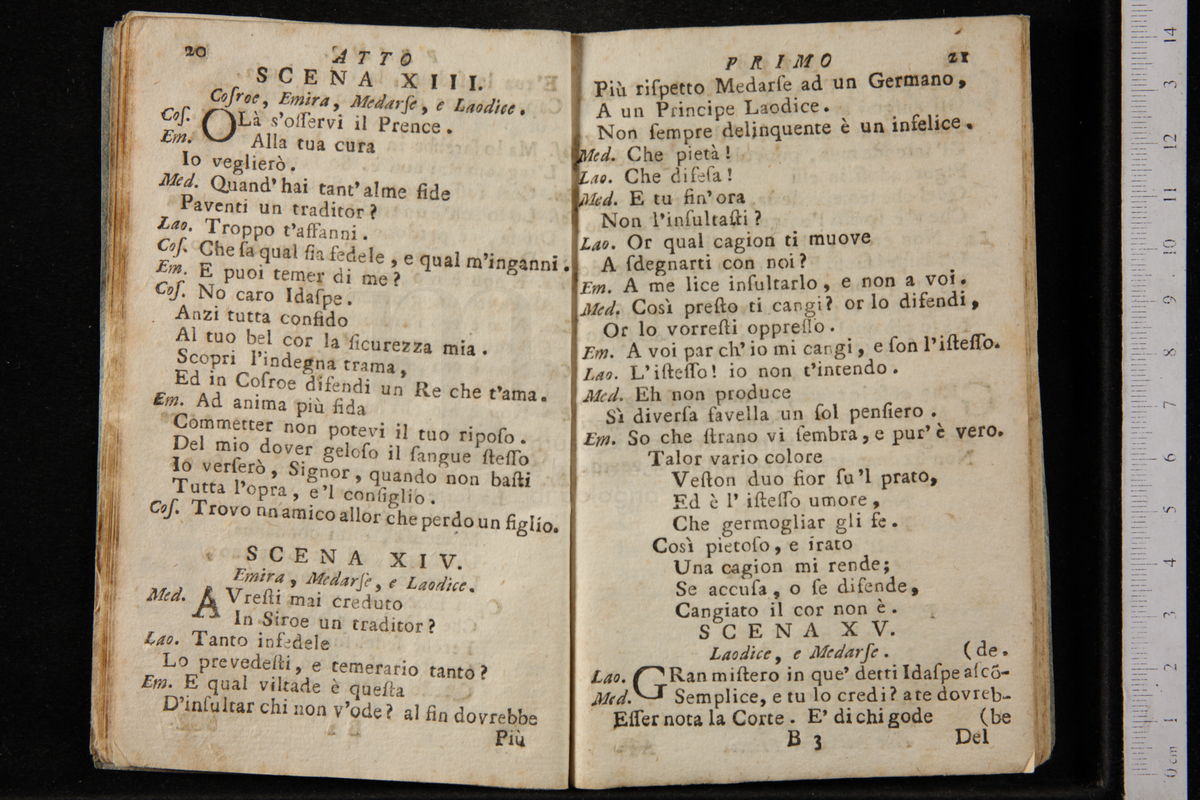 20
ATTO
SCENA XIII.
Coſroe, Emira, Medarſe, e Laodice.
Coſ. OLà s'oſſervi il Prence.
Em. Alla tua cura
Io veglierò.
Med. Quand' hai tant' alme fide
Paventi un traditor?
Lao. Troppo t'affanni.
Coſ. Che ſa qual ſia fedele, e qual m'inganni.
Em. E puoi temer di me?
Coſ. No caro Idaſpe.
Anzi tutta confido
Al tuo bel cor la ſicurezza mia.
Scopri l'indegna trama,
Ed in Coſroe difendi un Re che t'ama.
Em. Ad anima più fida
Commetter non potevi il tuo ripoſo.
Del mio dover geloſo il ſangue ſteſſo
Io verſerò, Signor, quando non baſti
Tutta l'opra, e'l conſiglio.
Coſ. Trovo nn amico allor che perdo un figlio.
SCENA XIV.
Emira, Medarſe, e Laodice.
Med. AVreſti mai creduto
In Siroe un traditor?
Lao. Tanto infedele
Lo prevedeſti, e temerario tanto?
Em. E qual viltade è queſta
D'inſultar chi non v'ode? al fin dovrebbe
Più
PRIMO
21
Più riſpetto Medarſe ad un Germano,
A un Principe Laodice.
Non ſempre delinquente è un infelice.
Med. Che pietà!
Lao. Che difeſa!
Med. E tu fin' ora
Non l'inſultaſti?
Lao. Or qual cagion ti muove
A ſdegnarti con noi?
Em. A me lice inſultarlo, e non a voi.
Med. Così preſto ti cangi? or lo difendi,
Or lo vorreſti oppreſſo.
Em. A voi par ch' io mi cangi, e ſon l'iſteſſo.
Lao. L'iſteſſo! io non t'intendo.
Med. Eh non produce
Sì diverſa favella un ſol penſiero.
Em. So che ſtrano vi ſembra, e pur' è vero.
Talor vario colore
Veſton duo fior ſu 'l prato,
Ed è l' iſteſſo umore,
Che germogliar gli fe.
Così pietoſo, e irato
Una cagion mi rende;
Se accuſa, o ſe difende,
Cangiato il cor non è.
SCENA XV.
Laodice, e Medarſe. (de.
Lao. GRan miſtero in que' detti Idaſpe aſcõ-
Med. Semplice, e tu lo credi? a te dovreb-
Eſſer nota la Corte. E' di chi gode (be
B 3
Del
0 cm 1 2 3 4 5 6 7 8 9 10 11 12 13 14